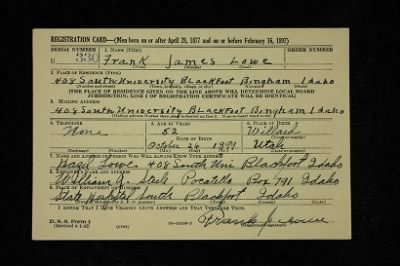 REGISTRATION CARD—(Men born on or after April 28, 1877 and on or before February 16, 1897)
SERIAL NUMBER 1. NAME (Print) ORDER NUMBER
U 330 Frank James Lowe
(First) (Middle) (Last)
2. PLACE OF RESIDENCE (Print)
408 South University Blackfoot Bingham Idaho
(Number and street) (Town, township, village, or city) (County) (State)
[THE PLACE OF RESIDENCE GIVEN ON THE LINE ABOVE WILL DETERMINE LOCAL BOARD
JURISDICTION; LINE 2 OF REGISTRATION CERTIFICATE WILL BE IDENTICAL]
3. MAILING ADDRESS
408 South University Blackfoot Bingham Idaho
[Mailing address if other than place indicated on line 2. If same insert word same]
4. TELEPHONE 5. AGE IN YEARS 6. PLACE OF BIRTH
None 52 Willard
DATE OF BIRTH
October 26 Utah
7. NAME AND ADDRESS OF PERSON WHO WILL ALWAYS KNOW YOUR ADDRESS
Lowe 408 South Uni Blackfoot Idaho
8. EMPLOYER'S NAME AND ADDRESS
William J. Steele Pocatello Box 791 Idaho
9. PLACE OF EMPLOYMENT OR BUSINESS
State Hospital South Blackfoot Idaho
I AFFIRM THAT I HAVE VERIFIED ABOVE ANSWERS AND THAT THEY ARE TRUE.
D. S. S. Form 1
(Revised 4-1-42)
Frank J Lowe